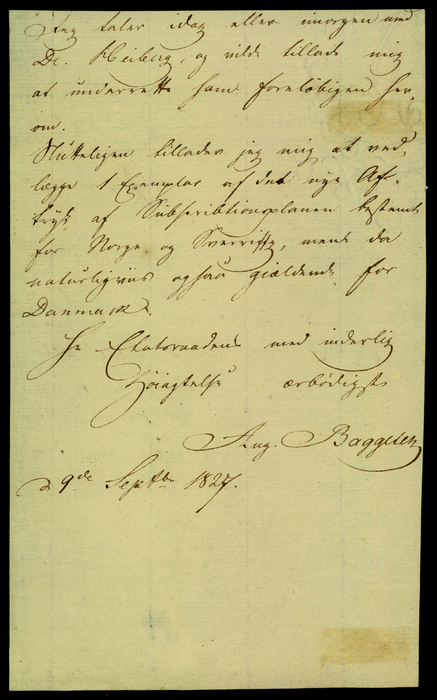 Jeg taler idag eller imorgen med
Dr. Heiberg, og vilde tillade mig
at underrette ham foreløbigen her-
om.
Slutteligen tillader jeg mig at ved-
lægge 1 Exemplar af det nye Af-
tryk af Subscribtionsplanen bestemt
for Norge og Sverrig, mens da
naturligviis ogsaa gjældende for
Danmark.
Hr Etatsraadens med inderlig
Høiagtelse ærbødigst
Aug. Baggesen
d 9de Septbr 1827.